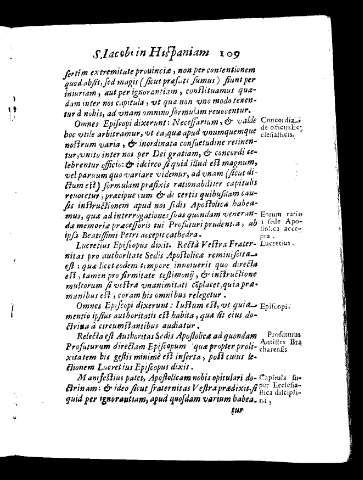 S. Iacobi in Hispaniam 109
sertim extremitate prouinciæ, non per contentionem
quod absit, sed magis (sicut præfati sumus) fiunt per
iniuriam, aut per ignorantiam, constituamus quæ-
dam inter nos capitula, vt quæ non vno modo tenen-
tur à nobis, ad vnam omnino formulam reuocentur.
Omnes Episcopi dixerunt: Necessarium, & valde
hoc vtile arbitramur, vt ea, quæ apud vnumquemque
nostrum varia, & inordinata consuetudine retinen-
tur, vnita inter nos per Dei gratiam, & concordi ce-
lebrentur officio: & ideirco si quid illud est magnum,
vel paruum quo variare videmur, ad vnam (sicut di-
ctum est) formulam præfixis rationabiliter capitulis
reuocetur, præcipue cum & de certis quibusdam cau-
sis instructionem apud nos sedis Apostolicæ habea-
mus, quæ ad interrogationes tuas quondam veneran-
dæ memoriæ præcessoris tui Profuturi prudentia, ab
ipsa Beatissimi Petri accepit cathedra.
Lucretius Episcopus dixit. Rectè Vestra Frater-
nitas pro authoritate Sedis Apostolicæ reminiscita
est: quæ licet eodem tempore innotuerit quo directa
est, tamen pro firmitate testimonij, & instructione
multorum si vestræ vnanimitati cõplacet, quia præ-
manibus est, coram his omnibus relegetur.
Omnes Episcopi dixerunt: Iustum est, vt quia
mentio ipsius authoritatis est habita, quæ sit eius do-
ctrina à circumstantibus audiatur.
Relecta est Authoritas Sedis Apostolicæ ad quondam
Profuturum directam Episcopum quæ propter proli-
xitatem his gestis minimè est inserta, post cuius le-
ctionem Lucretius Episcopus dixit.
Manifestius patet, Apostolicam nobis opitulari do-
ctrinam: & ideo sicut fraternitas Vestra prædixit, si
quid per ignorantiam, apud quosdam varium habea-
tur
Concordia
de officijs Ec
clesiasticis.
Earum ratio
à sede Apo
stolica acce
pta.
Lucretius.
Episcopi.
Profuturus
Antistes Bra
charensis
Capitula su-
per Ecclesia-
stica discipli-
na,